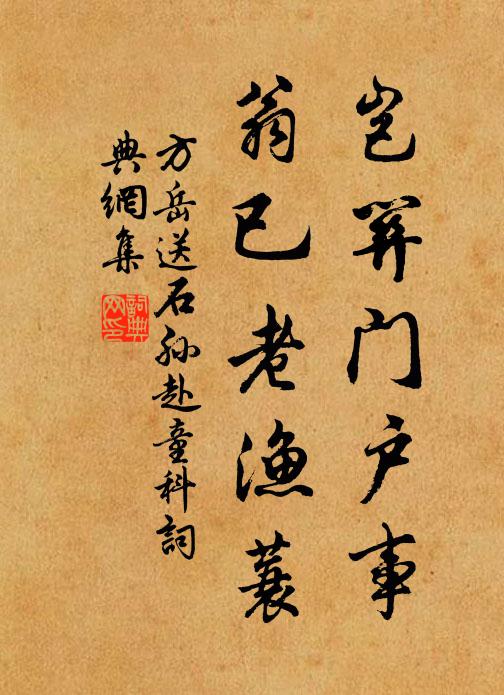 岂关门户事
翁已老渔蓑
方岳送石孙赴童科詞
典網集
詞典網印